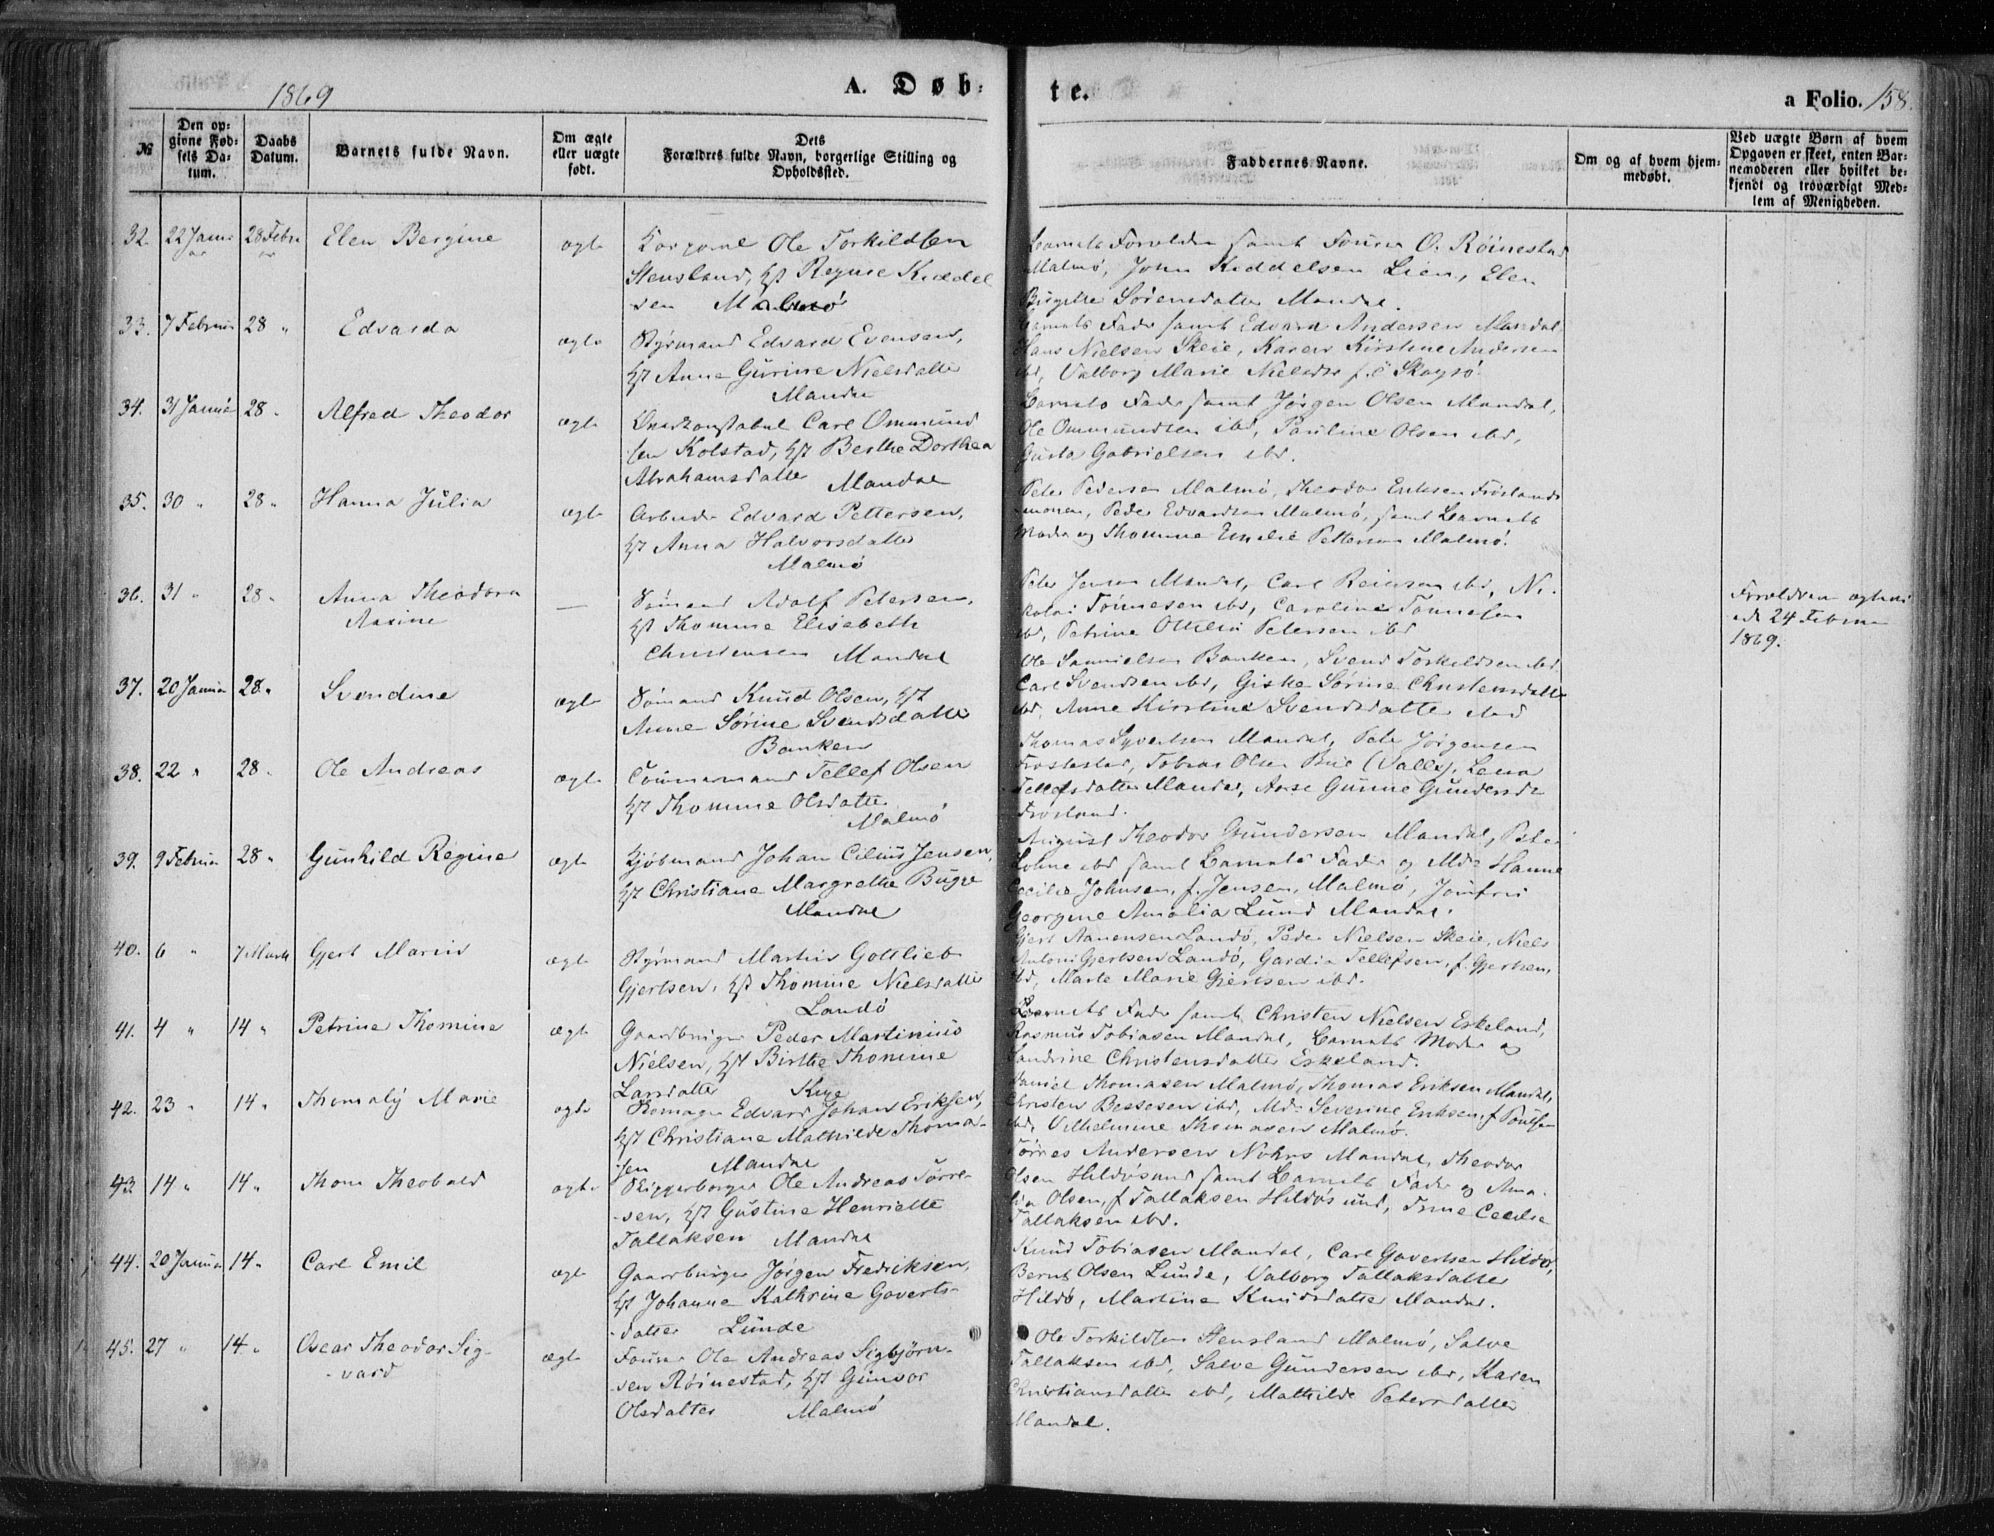 1869
A. Døb-
te.
a Folio. 158.
№
Den op-
givne Fød-
sels Da-
tum.
Daabs
Datum.
Barnets fulde Navn.
Om ægte
eller uægte
født.
Dets
Forældres fulde Navn, borgerlige Stilling og
Opholdssted.
Faddernes Navne.
Om og af hvem hjem-
medøbt.
Ved uægte Børn af hvem
Opgaven er skeet, enten Bar-
nemoderen eller hvilket be-
kjendt og troværdigt Med-
lem af Menigheden.
32. 22 Janu- 28 Febru
ar ar
Elen Bergine
ægte
Ole Torkildsen
Stensland, Hst Regine Kieddel
sen Malmø
Barnets Forældre samt O. Röinestad
Malmø, John Kieddelsen Lien, Elen
Birgitte Sörensdatter Mandal.
33. 7 Februar 28 "
Edvarda
ægte
Styrmand Edvard Evensen,
Hst Anne Gurine Nielsdatter
Mandal
Barnets Fader samt Edvard Andersen Mandal,
Hans Nielsen Skeie, Karen Kirstine Andersen
ibd, Valborg Marie Nielsdtr Skogsö.
34. 31 Januar 28 "
Alfred Theodor
ægte
Carl Ommund
sen Kolstad, Hst Berthe Dorthea
Abrahamsdatter Mandal
Barnets Fader samt Jörgen Olsen Mandal,
Ole Ommundsen ibd, Pauline Olsen ibd,
Gusta Gabrielsen ibd.
35. 30 " 28 "
Hanna Julia
ægte
Arbeider Edvard Pettersen,
Hst Anna Halvorsdatter
Malmö
Peter Pedersen Malmö, Theodor Eriksen Fröslands
monen, Peder Edvardsen Malmö, samt Barnets
Moder og Thomine Emelie Pettersen Malmö.
36. 31 " 28 "
Anna Theodora
Rasine
—
Sømand Adolf Petersen,
Hst Thomine Elisabeth
Christensen Mandal
Peter Jensen Mandal, Carl Reiersen ibd, Ni-
kolai Tönnesen ibd, Caroline Tönnesen
ibd, Petrine Ottilia Petersen ibd
Forældrene ægteviet
d. 24 Februar
1869.
37. 20 Januar 28 "
Svendine
ægte
Sømand Knud Olsen, Hst
Anne Sörine Svendsdatter
Banken
Ole Samuelsen Banken, Svend Torkildsen ibd
Carl Svendsen ibd, Giske Sörine Christensdatter
ibd, Anne Kirstine Svendsdatter ibd
38. 22 " 28 "
Ole Andreas
ægte
Tömmermand Tellef Olsen
Hst Thomine Olsdatter
Malmö
Thomas Syvertsen Mandal, Peter Jörgensen
Frostestad, Tobias Olsen Bue (Valle), Lena
Tellefsdatter Mandal, Aase Gurine Gundersdt
Frösland.
39. 9 Februar 28 "
Gunhild Regine
ægte
Kjøbmand Johan Cilius Jensen,
Hst Christiane Margrethe Bugge
Mandal
August Theodor Gundersen Mandal, Peter
Lohne ibd samt Barnets Fader og Md: Hanne
Cecilia Johnsen, f. Jensen, Malmö, Jomfru
Georgine Amalia Lund Mandal.
40. 6 " 7 Marts
Gjert Marius
ægte
Styrmand Martius Gottlieb
Gjertsen, Hst Thomine Nielsdatter
Landö
Gjert Aanensen Landö, Peder Nielsen Skeie, Niels
Antoni Gjertsen Landö, Gardia Tellefsen, f. Gjertsen,
ibd, Marte Marie Gjertsen ibd.
41. 4 " 14 "
Petrine Thomine
ægte
Gaardbruger Peder Martinius
Nielsen, Hst Birthe Thomine
Larsdatter Skeie
Barnets Fader samt Christen Nielsen Eskeland,
Rasmus Tobiasen Mandal, Barnets Moder og
Sandrine Christensdatter Eskeland.
42. 23 " 14 "
Thomaly Marie
ægte
Skomager Edvard Johan Eriksen,
Hst Christiane Mathilde Thoma-
sen Mandal
Daniel Thomasen Malmö, Thomas Eriksen Mandal,
Christen Bessesen ibd, Md: Severine Eriksen, f. Poulsen
ibd, Vilhelmine Thomasen Malmö.
43. 14 " 14 "
Thom Theobald
ægte
Skipperborger Ole Andreas Törre-
sen, Hst Gustine Henriette
Tallaksen Mandal
Törres Andersen Nohrs Mandal, Theodor
Olsen Hildösund samt Barnets Fader og Ama-
lia Olsen, f. Tallaksen Hildösund, Trine Cecilie
Tallaksen ibd.
44. 20 Januar 14 "
Carl Emil
ægte
Gaardbruger Jörgen Fredriksen,
Hst Johanne Kathrine Goverts-
datter Lunde
Knud Tobiasen Mandal, Carl Govertsen Hildö,
Bernt Olsen Lunde, Valborg Tallaksdatter
Hildö, Martine Knudsdatter Mandal.
45. 27 " 14 "
Oscar Theodor Sig-
vard
ægte
Ole Andreas Sigbjörn-
sen Röinestad, Hst Gunvor
Olsdatter Malmö
Ole Torkildsen Stensland Malmö, Salve
Tallaksen ibd, Salve Gundersen ibd, Karen
Christiansdatter ibd, Mathilde Petersdatter
Mandal.